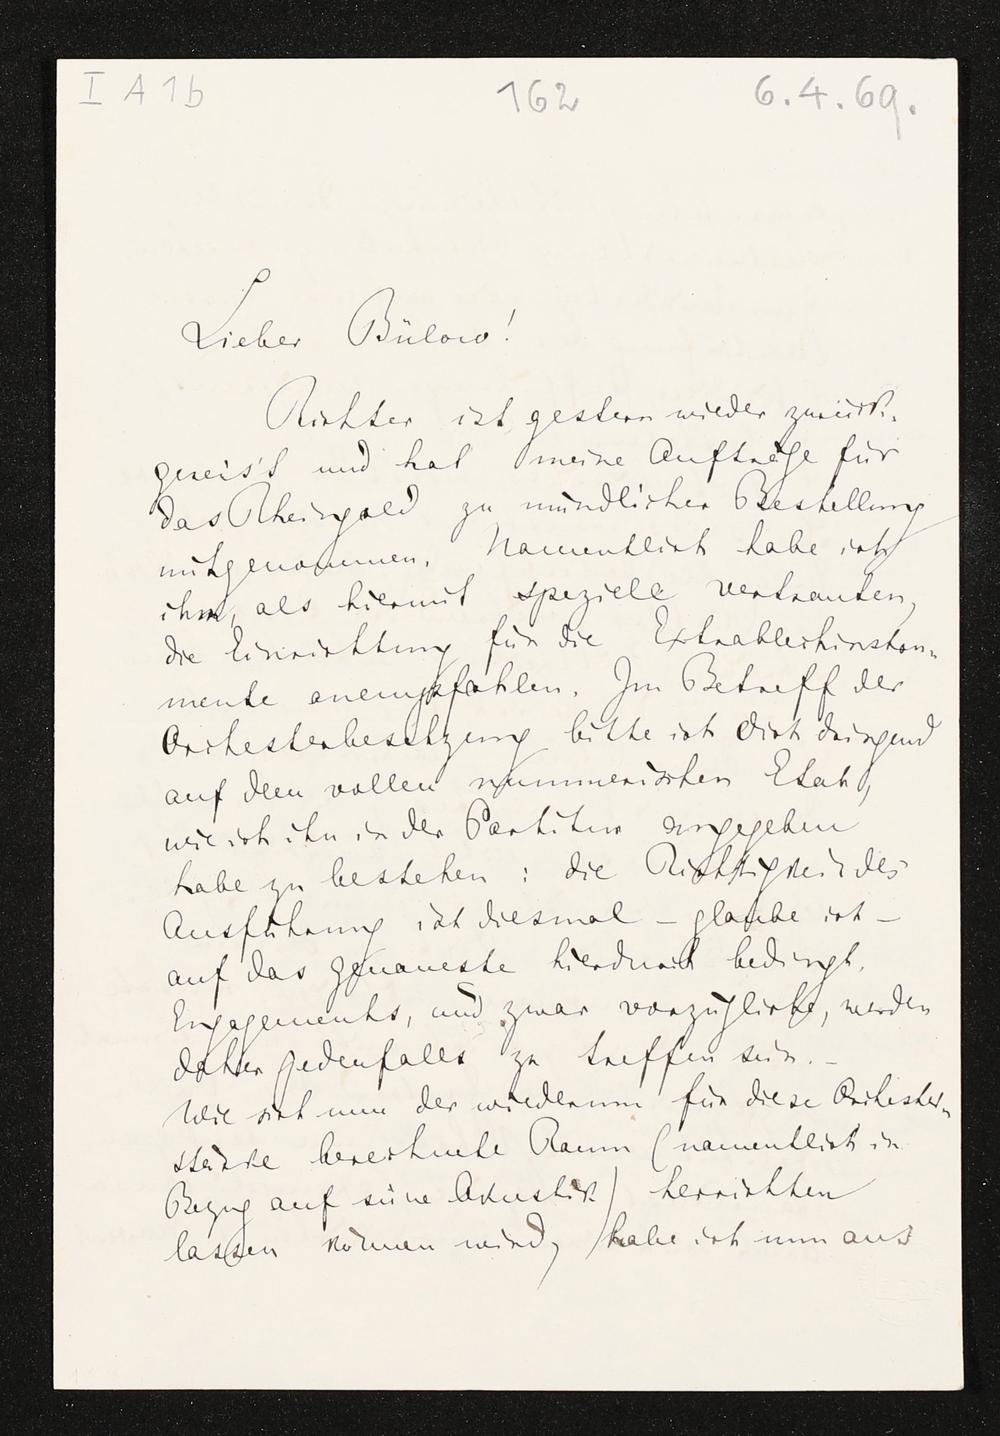 I A 1b 162 6.4.69.
Lieber Bülow!
Richter ist gestern wieder zurück-
gereis't und hat meine Aufträge für
das Rheingold zu mündlicher Bestellung
mitgenommen. Namentlich habe ich
ihm, als hiermit speziell vertrauten,
die Einrichtung für die Extrablechinstru-
mente anempfohlen. Im Betreff der
Orchesterbesetzung bitte ich Dich dringend
auf dem vollen nummerischen Etat,
wie ich ihn in der Partitur angegeben
habe zu bestehen: die Richtigkeit des
Ausführung ist diesmal – glaube ich –
auf das genaueste hierdurch bedingt.
Engagements, und zwar vorzügliche, werden
daher jedenfalls zu treffen sein. –
Wie sich nun der wiederum für diese Orchester-
stärke berechnete Raum (namentlich in
Bezug auf seine Akustik) herrichten
lassen können wird, habe ich nun aus